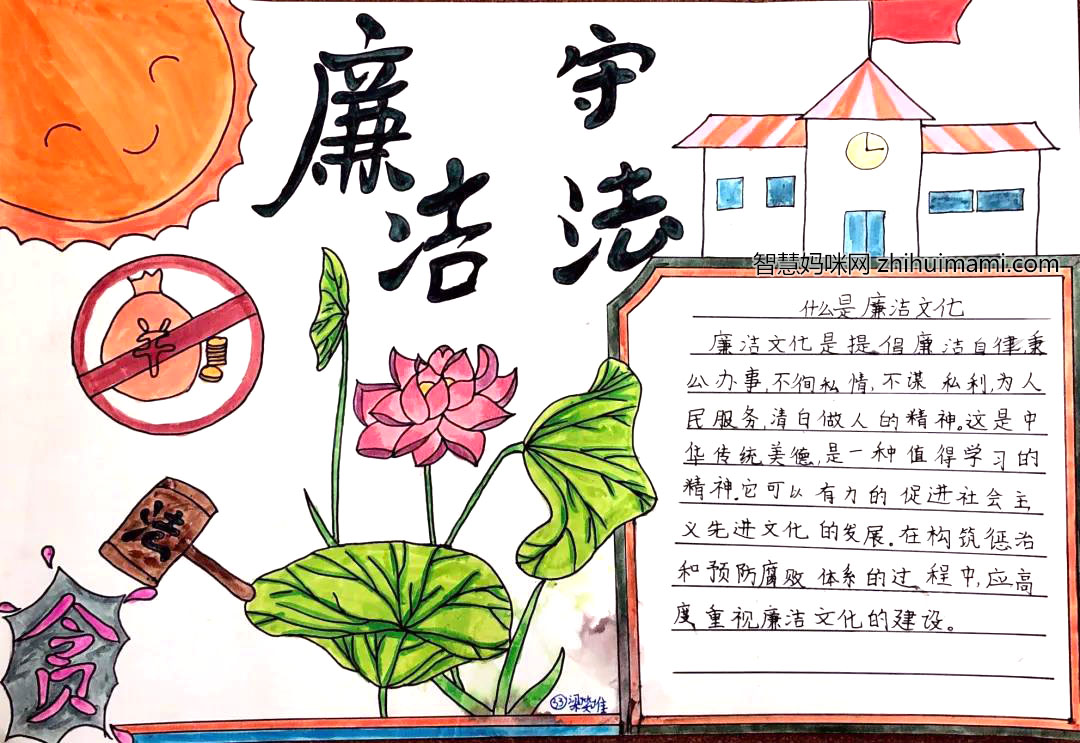 廉洁
守法
智慧妈咪网 zhihuimami.com
什么是廉洁文化
廉洁文化是提倡廉洁自律,秉
公办事,不徇私情,不谋私利,为人
民服务,清白做人的精神。这是中
华传统美德,是一种值得学习的
精神。它可以有力的促进社会主
义先进文化的发展。在构筑惩治
和预防腐败体系的过程中,应高
度重视廉洁文化的建设。
法
贪
33